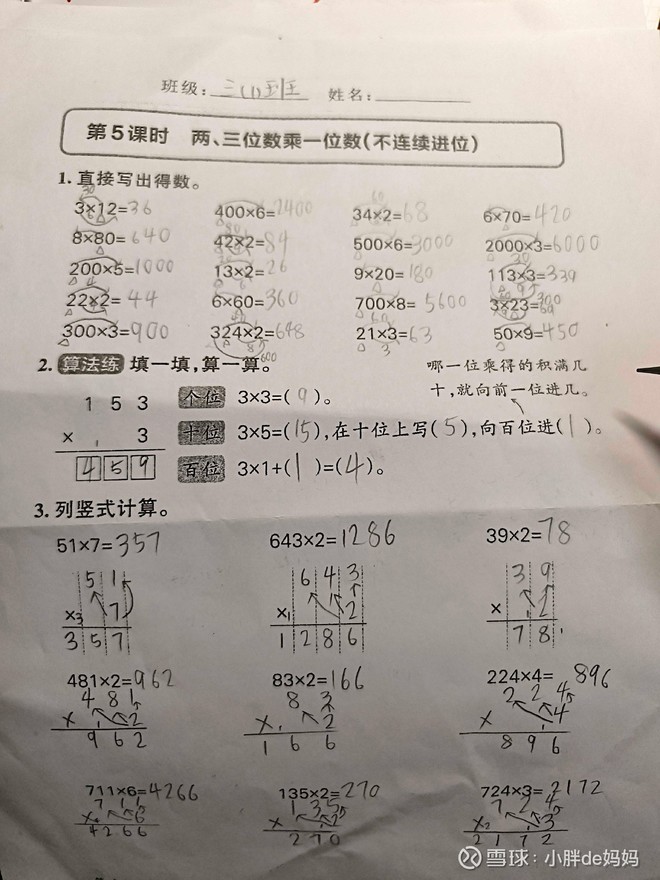 班级：三(1)班 姓名：
第5课时 两、三位数乘一位数(不连续进位)
1. 直接写出得数。
3×12=36 400×6=2400 34×2=68 6×70=420
8×80=640 42×2=84 500×6=3000 2000×3=6000
200×5=1000 13×2=26 9×20=180 113×3=339
22×2=44 6×60=360 700×8=5600 3×23=69
300×3=900 324×2=648 21×3=63 50×9=450
2. 算法练 填一填,算一算。
哪一位乘得的积满几
十,就向前一位进几。
1 5 3
× 3
4 5 9
个位 3×3=(9)。
十位 3×5=(15),在十位上写(5),向百位进(1)。
百位 3×1+(1)=(4)。
3. 列竖式计算。
51×7=357 643×2=1286 39×2=78
5 1 6 4 3 3 9
×3 7 ×1 2 × 1 2
3 5 7 1 2 8 6 7 8
481×2=962 83×2=166 224×4=896
4 8 1 8 3 2 2 4
× 1 2 ×1 2 × 1 4
9 6 2 1 6 6 8 9 6
711×6=4266 135×2=270 724×3=2172
7 1 1 1 3 5 7 2 4
×4 6 × 1 2 ×2 1 3
4 2 6 6 2 7 0 2 1 7 2
雪球：小胖de妈妈